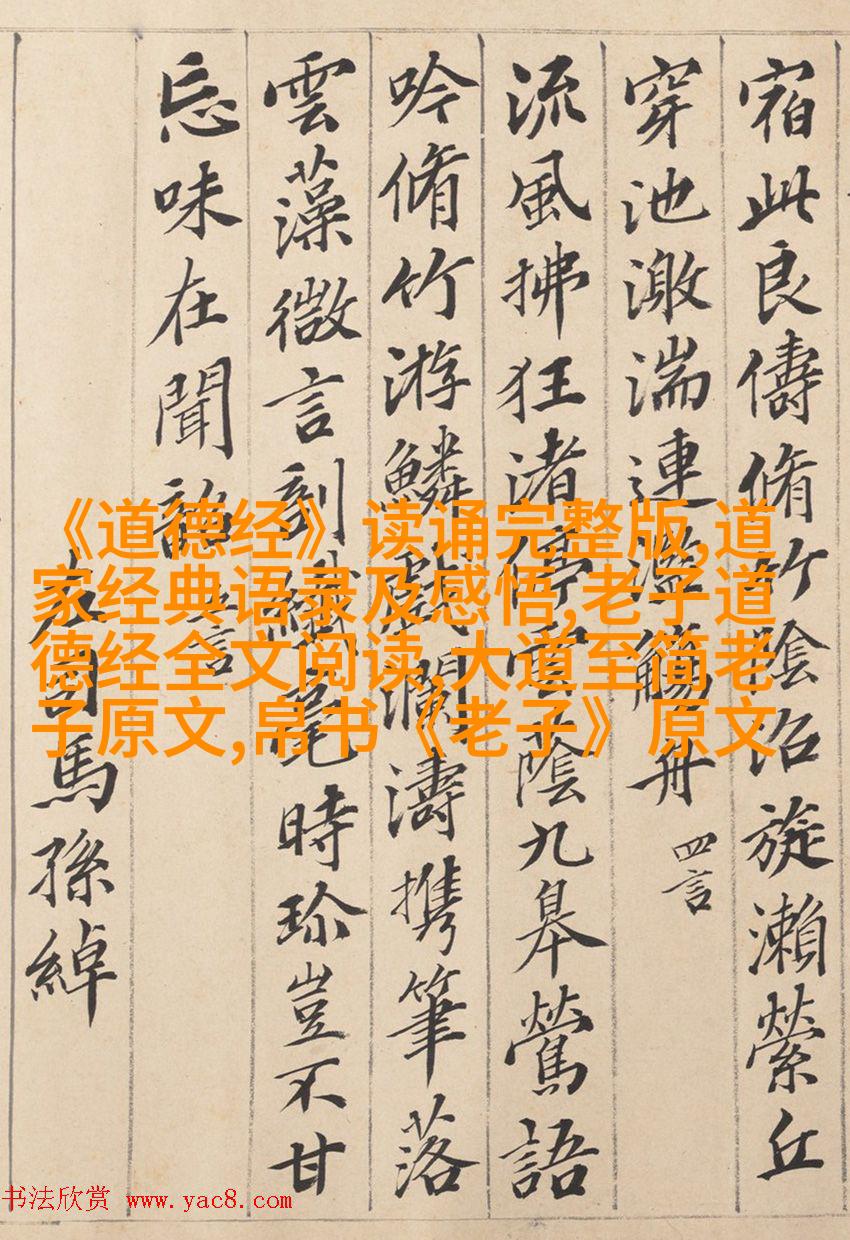 宿此良儔脩竹陰沼旋瀨縈丘
穿池激湍連濫觴舟
四言
流風拂狂渚停雲蔭九皋鶯語
吟脩竹游鱗戲瀾濤携筆落
雲藻微言剖纖毫時珍豈不甘
忘味在聞韶
五言
左司馬孫綽
《道德经》读诵完整版,道
家经典语录及感悟,老子道
德经全文阅读,大道至简老
子原文,帛书《老子》原文
书法欣赏 www.yac8.com